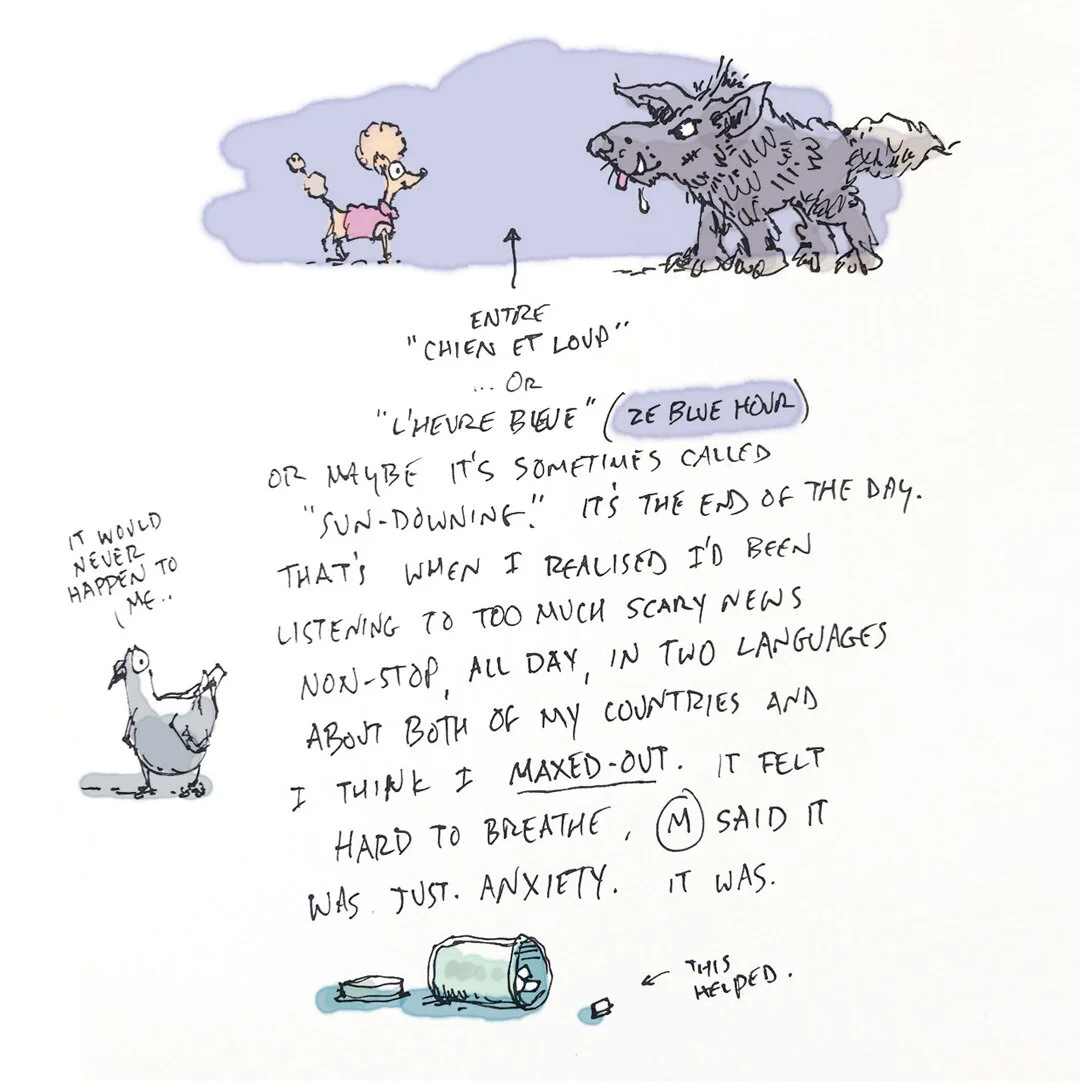 ENTRE
"CHIEN ET LOUP"
... OR
"L'HEURE BLEUE" (ZE BLUE HOUR)
OR MAYBE IT'S SOMETIMES CALLED
"SUN-DOWNING." IT'S THE END OF THE DAY.
THAT'S WHEN I REALISED I'D BEEN
LISTENING TO TOO MUCH SCARY NEWS
NON-STOP, ALL DAY, IN TWO LANGUAGES
ABOUT BOTH OF MY COUNTRIES AND
I THINK I MAXED-OUT. IT FELT
HARD TO BREATHE, M SAID IT
WAS JUST. ANXIETY. IT WAS.
IT WOULD
NEVER
HAPPEN TO
ME..
THIS
HELPED.